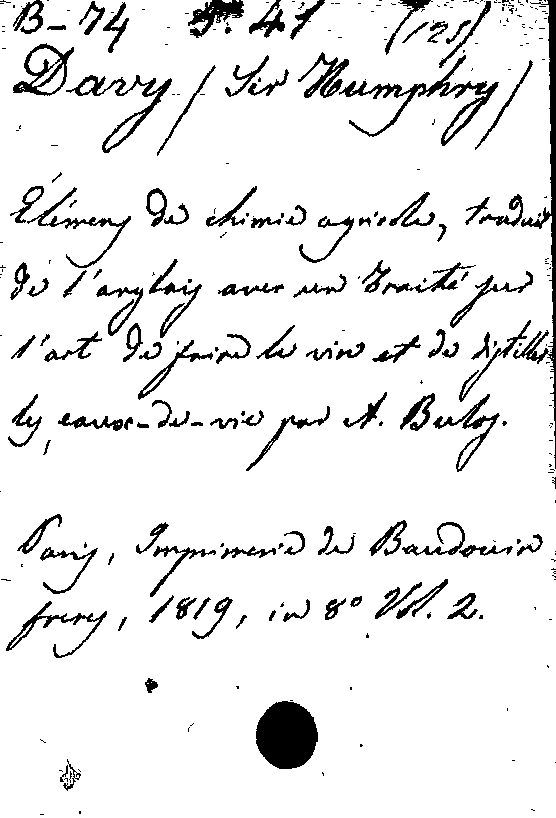 B-74 5. 41 (125)
Davy / Sir Humphry /
Élémens de chimie agricole, traduit
de l'anglais avec un Traité sur
l'art de faire le vin et de distiller
les eaux-de-vie par A. Bulos.
Paris, Imprimerie de Baudouin
frères, 1819, in 8º Vol. 2.